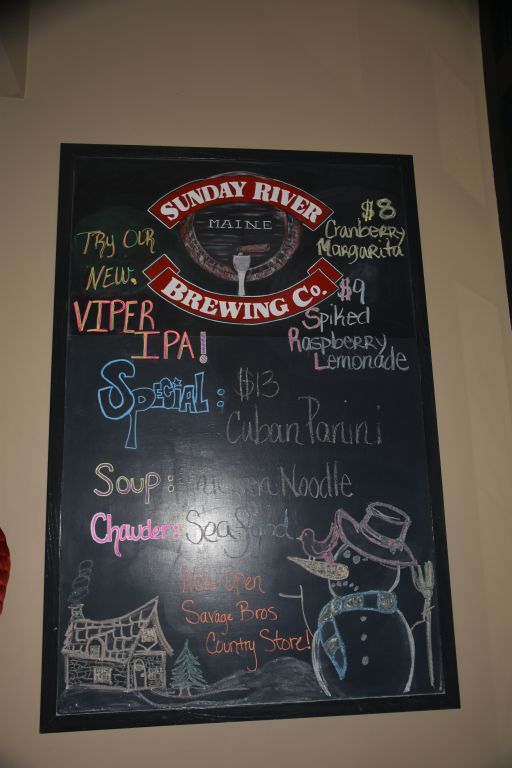 SUNDAY RIVER
MAINE
BREWING CO.
TRY OUR
NEW.
VIPER
IPA!
$8
Cranberry
Margarita
$9
Spiked
Raspberry
Lemonade
SPECIAL: $13
Cuban Panini
Soup: Chicken Noodle
Chowder: Seafood
Now Open
Savage Bros
Country Store!